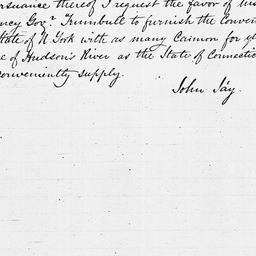 rsuance thereof I request the favor of his
ncy Gov.r Trumbull to furnish the Conven
State of N. York with as many Cannon for ye
e of Hudson's River as the State of Connectic
onveniently supply.
John Jay.